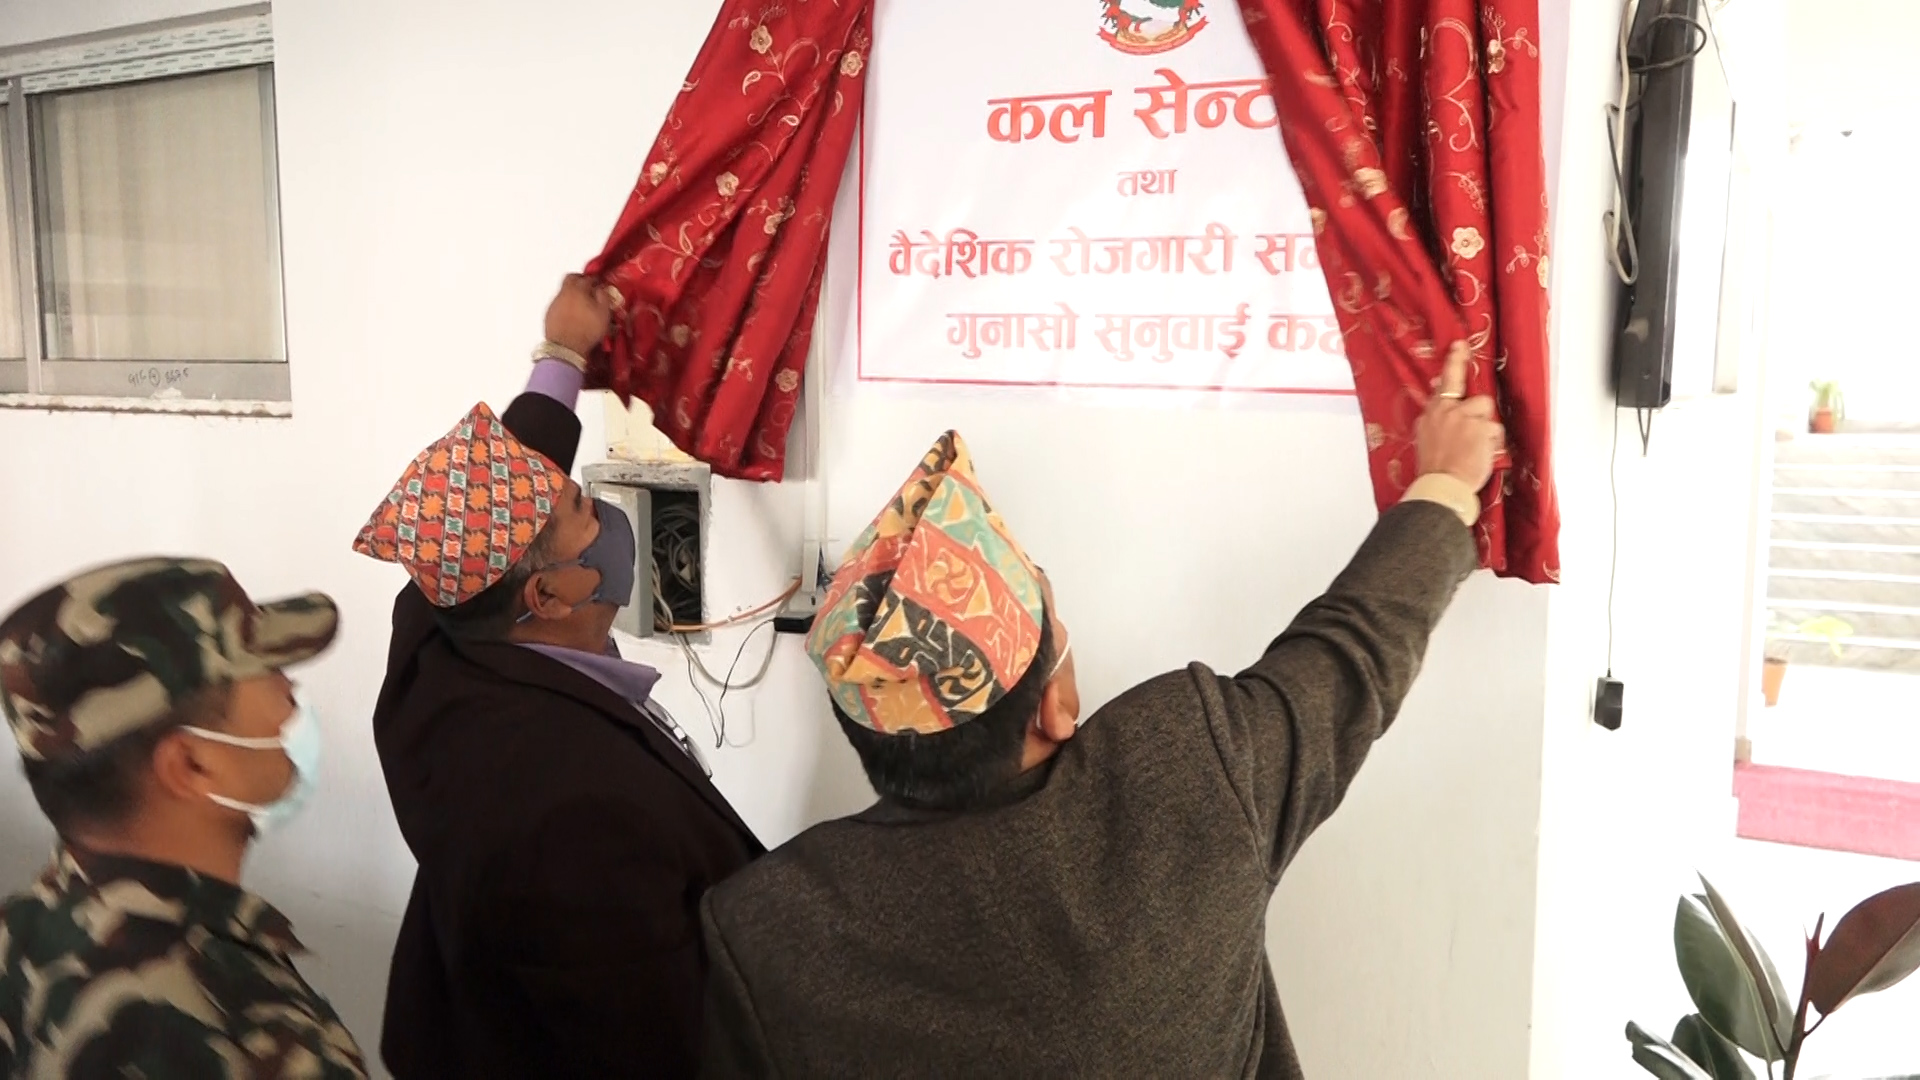 कल सेन्ट
तथा
वैदेशिक रोजगारी
गुनासो सुनुवाई